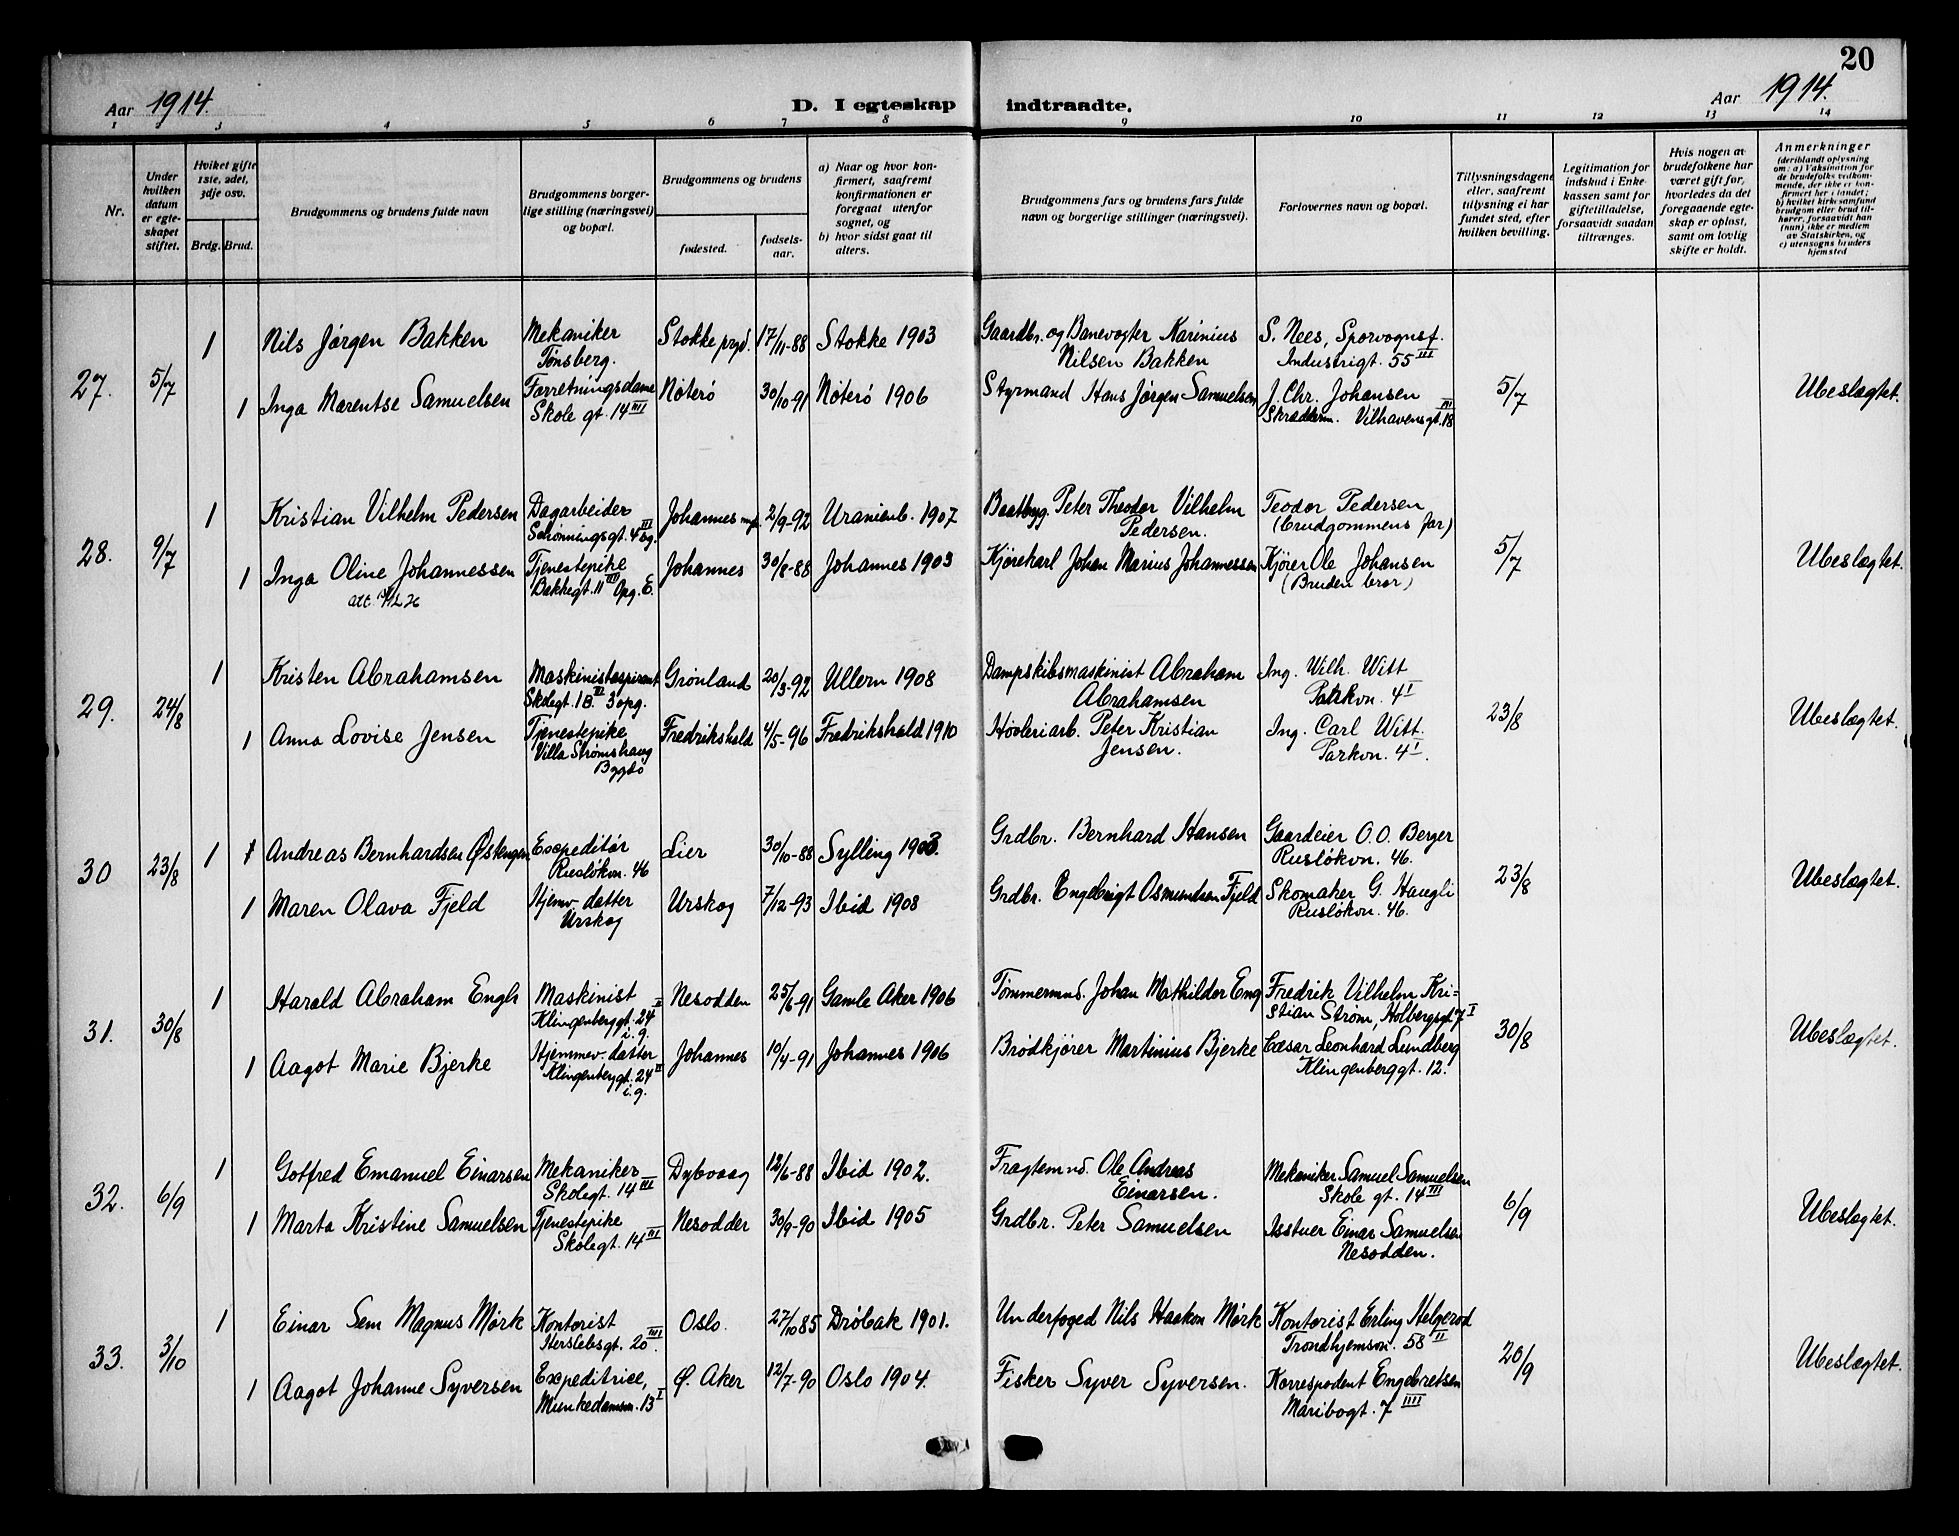 20
Aar 1914.
D. I egteskap indtraadte.
Aar 1914.
1 2 3 4 5 6 7 8 9 10 11 12 13 14
Nr.
Under hvilken datum er egteskapet stiftet.
Hvilket gifte 1ste, 2det, 3dje osv.
Brdg. Brud.
Brudgommens og brudens fulde navn
Brudgommens borgerlige stilling (næringsvei) og bopæl.
Brudgommens og brudens
fødested.
fødselsaar.
a) Naar og hvor konfirmert, saafremt konfirmationen er foregaat utenfor sognet, og
b) hvor sidst gaat til alters.
Brudgommens fars og brudens fars fulde navn og borgerlige stillinger (næringsvei).
Forlovernes navn og bopæl.
Tillysningsdagene eller, saafremt tillysning ei har fundet sted, efter hvilken bevilling.
Legitimation for indskud i Enkekassen samt for giftetilladelse, forsaavidt saadan tiltrænges.
Hvis nogen av brudefolkene har været gift før, hvorledes da det foregaaende egteskap er opløst, samt om lovlig skifte er holdt.
Anmerkninger
(deriblandt oplysning om: a) Vaksination for de brudefolks vedkommende, der ikke er konfirmert her i landet; b) hvilket kirkesamfund brudgom eller brud tilhører, forsaavidt han (hun) ikke er medlem av Statskirken, og c) utensogns bruders hjemsted
27. 5/7
1 Nils Jørgen Bakken Mekaniker Stokke prgd. 17/11-88 Stokke 1903 Gaardbr. og Banevogter Karinius S. Nees, Sporvognsf.
Tønsberg. Nilsen Bakken Industrigt. 55 III
1 Inga Marentse Samuelsen Forretningsdame Nøterø 30/10-91 Nøterø 1906 Styrmand Hans Jørgen Samuelsen J. Chr. Johansen 5/7 Ubeslægtet.
Skole gt. 14 III Skræderm. Vilhavensgt. 18 III
28. 9/7
1 Kristian Vilhelm Pedersen Dagarbeider Johannes 2/9-92 Uranienb. 1907 Baatbyg. Peter Theodor Vilhelm Teodor Pedersen
Schønningsgt. 4 III og. Pedersen. (brudgommens far)
1 Inga Oline Johannessen Tjenestepike Johannes 30/8-88 Johannes 1903 Kjørekarl Johan Marius Johannessen Kjører Ole Johansen 5/7 Ubeslægtet.
Bakkegt. 11 III Opg. E. (Bruden bror)
29. 24/8
1 Kristen Abrahamsen Maskinistaspirant Grønland 20/3-92 Ullern 1908 Dampskibsmaskinist Abraham Ing. Wilh. Witt
Skolegt. 18 III 3 opg. Abrahamsen Parkvn. 4 I
1 Anna Lovise Jensen Tjenestepike Fredrikshald 4/5-96 Fredrikshald 1910 Høvleriarb. Peter Kristian Ing. Carl Witt. 23/8 Ubeslægtet.
Villa Strømshaug Jensen. Parkvn. 4 I.
Bygdø
30 23/8
1 1 Andreas Bernhardsen Østengen Expeditør Lier 30/10-88 Sylling 1903. Grdbr. Bernhard Hansen Gaardeier O. O. Berger
Rusløkvn. 46 Rusløkvn. 46.
1 Maren Olava Fjeld Hjemv- datter Urskog 7/12-93 Ibid 1908 Grdbr. Engebrigt Osmundsen Fjeld Skomaker G. Haugli 23/8 Ubeslægtet.
Urskog Rusløkvn. 46.
31. 30/8
1 Harald Abraham Engh Maskinist Nesodden 25/6-91 Gamle Aker 1906 Tømmermnd. Johan Mathilder Eng Fredrik Vilhelm Kri=
Klingenberggt. 24 II stian Strøm, Holbergsgt 7 I
i. g.
1 Aagot Marie Bjerke Hjemmev- datter Johannes 10/4-91 Johannes 1906 Brødkjører Martinius Bjerke Cæsar Leonhard Lundberg 30/8 Ubeslægtet.
Klingenberggt. 24 II Klingenberggt. 12.
i. g.
32. 6/9
1 Gotfred Emanuel Einarsen Mekaniker Dybvaag 12/6-88 Ibid 1902. Fragtemnd. Ole Andreas Mekaniker Samuel Samuelsen
Skolegt. 14 III Einarsen. Skole gt. 14 III
1 Marta Kristine Samuelsen Tjenestepike Nesodder 30/9-90 Ibid 1905 Grdbr. Peter Samuelsen Isstuer Einar Samuelsen 6/9 Ubeslægtet.
Skolegt. 14 III Nesodden.
33. 3/10
1 Einar Sem Magnus Mørk Kontorist Oslo. 27/10 85 Drøbak 1901. Underfoged Nils Haakon Mørk Kontorist Erling Helgerod
Herslebsgt. 20 IIII. Trondhjemsvn. 58 II
1 Aagot Johanne Syversen Expeditrice, Ø. Aker 12/7-90 Oslo 1904. Fisker Syver Syversen. Korrespodent Engebretsen 20/9 Ubeslægtet.
Munkedamsvn. 13 I Maribogt. 7 IIII